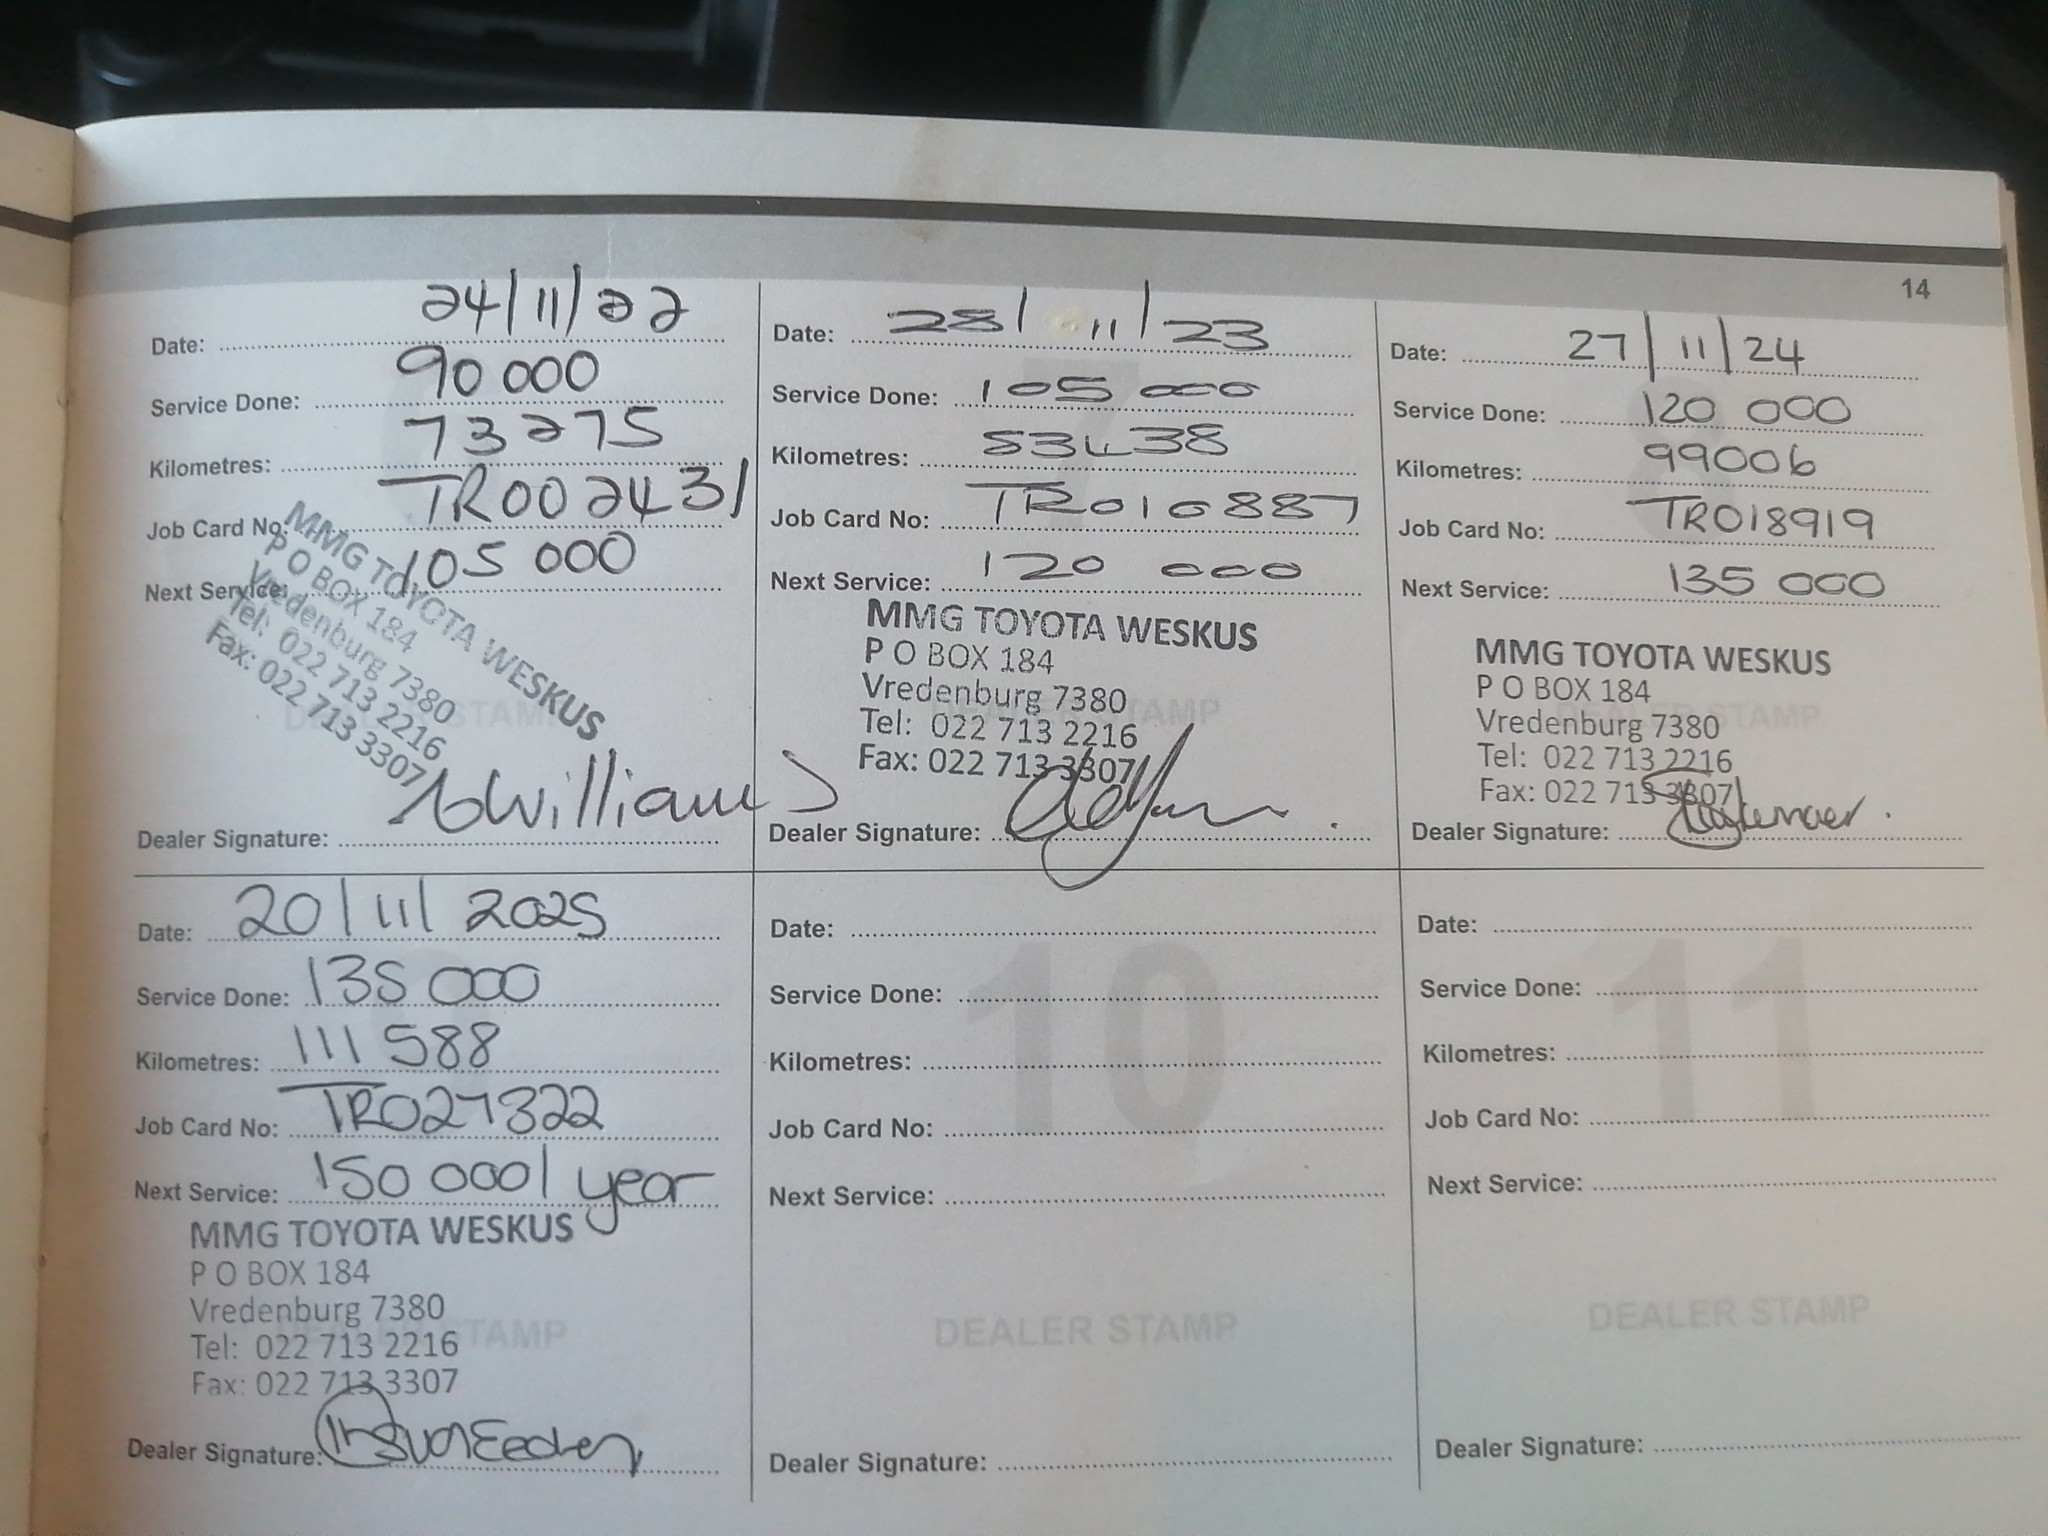 14
Date: 24/11/22
Service Done: 90 000
Kilometres: 73275
Job Card No: TR002431
Next Service: 105 000
MMG TOYOTA WESKUS
P O BOX 184
Vredenburg 7380
Tel: 022 713 2216
Fax: 022 713 3307
DEALER STAMP
Dealer Signature: Williams
Date: 28/11/23
Service Done: 105 000
Kilometres: 83438
Job Card No: TR010887
Next Service: 120 000
MMG TOYOTA WESKUS
P O BOX 184
Vredenburg 7380
Tel: 022 713 2216
Fax: 022 713 3307
DEALER STAMP
Dealer Signature:
Date: 27/11/24
Service Done: 120 000
Kilometres: 99006
Job Card No: TR018919
Next Service: 135 000
MMG TOYOTA WESKUS
P O BOX 184
Vredenburg 7380
Tel: 022 713 2216
Fax: 022 713 3307
DEALER STAMP
Dealer Signature:
Date: 20/11/2025
Service Done: 135 000
Kilometres: 111 588
Job Card No: TR027322
Next Service: 150 000/ year
MMG TOYOTA WESKUS
P O BOX 184
Vredenburg 7380
Tel: 022 713 2216
Fax: 022 713 3307
DEALER STAMP
Dealer Signature:
10
Date:
Service Done:
Kilometres:
Job Card No:
Next Service:
DEALER STAMP
Dealer Signature:
11
Date:
Service Done:
Kilometres:
Job Card No:
Next Service:
DEALER STAMP
Dealer Signature: